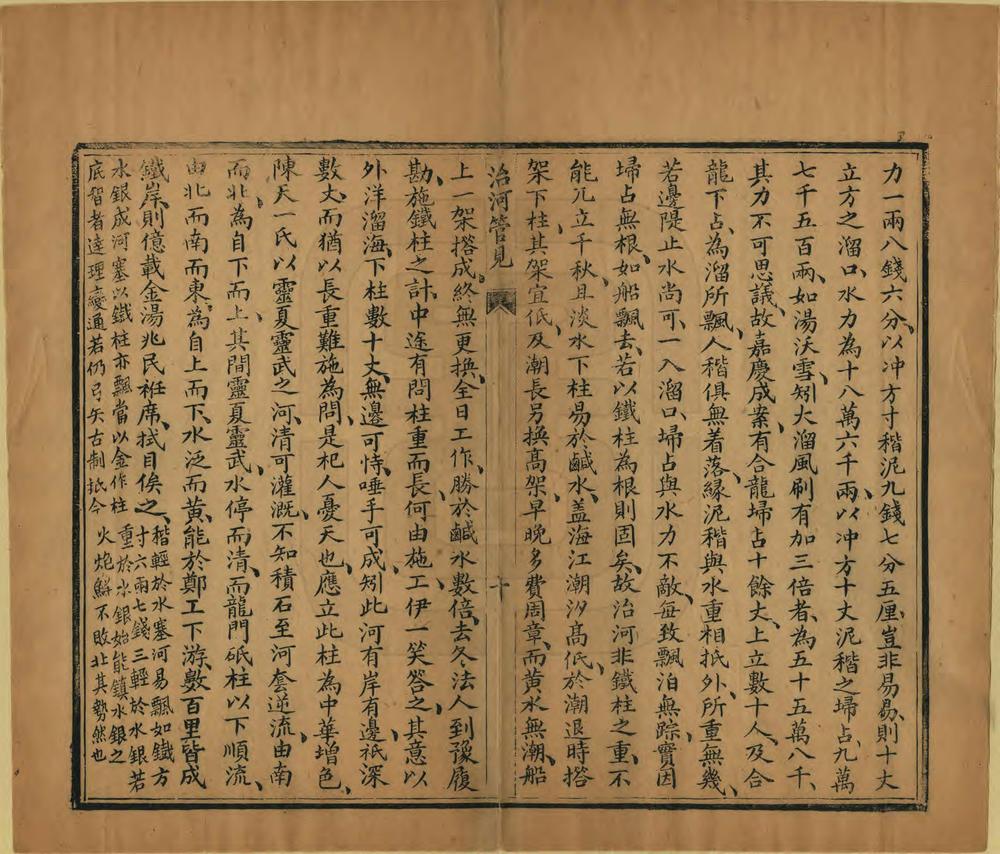 力一兩八錢六分、以冲方寸稭泥九錢七分五厘、豈非易易、則十丈
立方之溜口、水力為十八萬六千兩、以冲方十丈泥稭之埽占、九萬
七千五百兩、如湯沃雪、矧大溜風刷有加三倍者、為五十五萬八千、
其力不可思議、故嘉慶成案、有合龍埽占十餘丈、上立數十人、及合
龍下占、為溜所飄、人稭俱無着落、緣泥稭與水重相抵外、所重無幾、
若邊隄止水尚可、一入溜口、埽占與水力不敵、每致飄泊無踪、實因
埽占無根、如船飄去、若以鐵柱為根則固矣、故治河非鐵柱之重、不
能兀立千秋、且淡水下柱易於鹹水、盖海江潮汐髙低、於潮退時搭
架下柱、其架宜低、及潮長另換髙架、早晚多費周章、而黄水無潮、船
治河管見
十
上一架搭成、終無更換、全日工作、勝於鹹水數倍、去冬法人到豫履
勘、施鐵柱之計、中途有問柱重而長、何由施工、伊一笑答之、其意以
外洋溜海、下柱數十丈、無邊可恃、唾手可成、矧此河有岸有邊、祇深
數丈、而猶以長重難施為問、是杞人憂天也、應立此柱為中華增色、
陳天一氏以靈夏靈武之河、清可灌溉、不知積石至河套逆流、由南
而北、為自下而上、其間靈夏靈武、水停而清、而龍門砥柱以下順流、
由北而南而東、為自上而下、水泛而黄、能於鄭工下游、數百里皆成
鐵岸、則億載金湯兆民袵席、拭目俟之、稭輕於水塞河易飄如鐵方
寸六兩七錢三輕於水銀若
水銀成河塞以鐵柱亦飄當以金作柱重於水銀始能鎮水銀之
底智者達理變通若仍弓矢古制抵今火炮鮮不敗北其勢然也